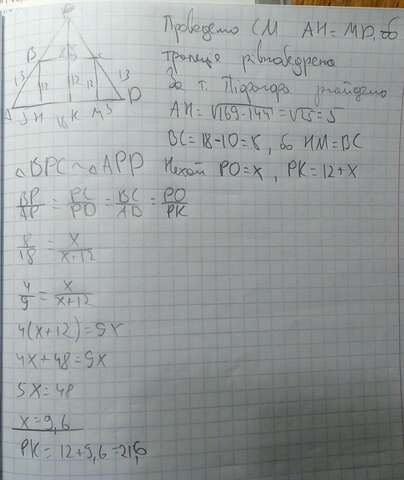 P
B
C
13
12
12
12
13
A
5
H
18
K
M
5
D
Проведемо CM AH = MD, бо
трапеція рівнобедрена
За т. Піфагора знайдемо
AH = √169-144 = √25 = 5
BC = 18-10 = 8, бо HM = BC
△BPC ~ △APD
Нехай PO = x, PK = 12+x
BP/AP = PC/PD = BC/AD = PO/PK
8/18 = x/x+12
4/9 = x/x+12
4(x+12) = 9x
4x+48 = 9x
5x = 48
x = 9,6
PK = 12+9,6 = 21,6